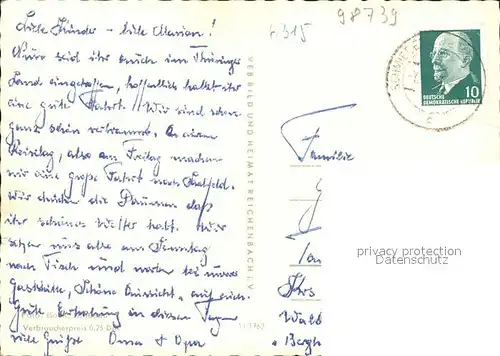 Liebe Kinder – liebe Marion!
Nun seid ihr auch im Thüringer
Land eingetroffen, hoffentlich hattet ihr
eine gute Fahrt. Wir sind schon
ganz schön verbrannt. An eurem
Reisetag, also am Freitag machen
wir eine große Fahrt nach Saalfeld.
Wir drücken die Daumen daß
ihr schönes Wetter habt. Wir
sehen uns also am Sonntag
nach Tisch und warten bei unserer
Gaststätte „Schöne Aussicht" auf euch.
Gute Erholung in diesen Tagen
viele Grüße Oma + Opa
Verbraucherpreis 0,25 D
VEB BILD UND HEIMAT REICHENBACH i. V.
6315
98739
10
DEUTSCHE
DEMOKRATISCHE REPUBLIK
Familie
privacy protection
Datenschutz
Krs
Wald
"Bergh